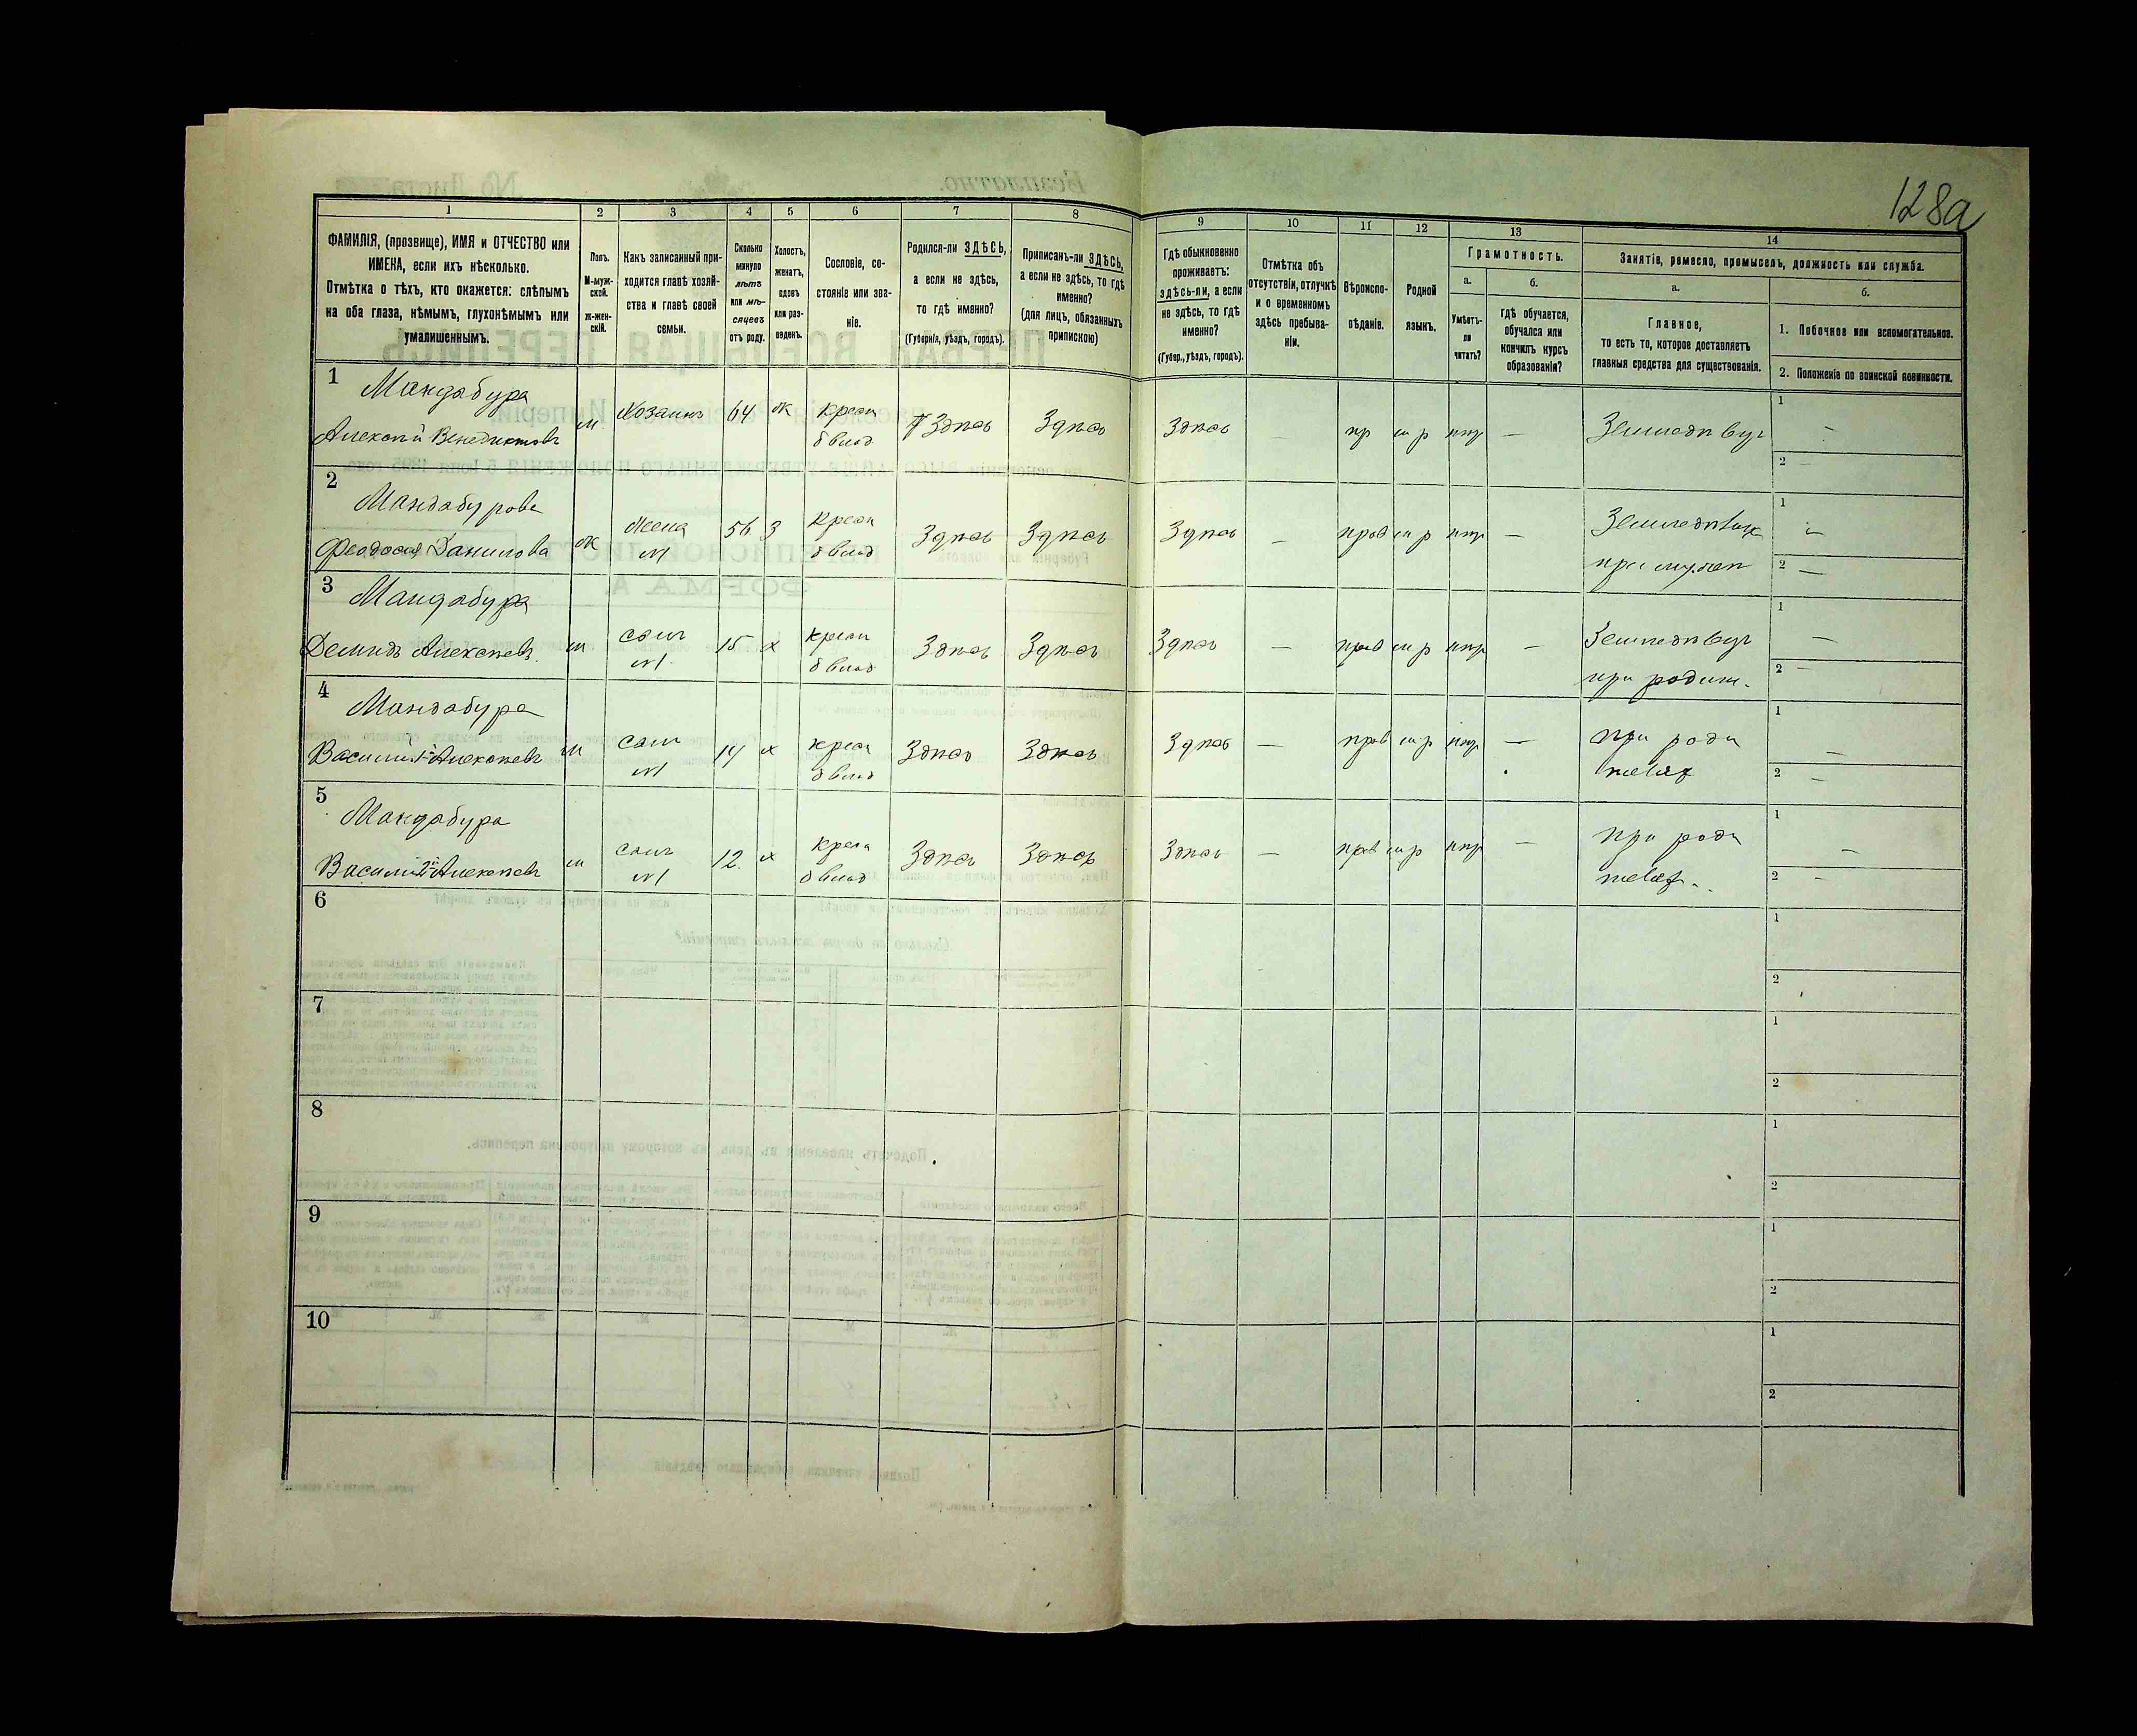 128а
1 2 3 4 5 6 7 8 9 10 11 12 13 14
ФАМИЛІЯ, (прозвище), ИМЯ и ОТЧЕСТВО или
ИМЕНА, если ихъ нѣсколько.
Отмѣтка о тѣхъ, кто окажется: слѣпымъ
на оба глаза, нѣмымъ, глухонѣмымъ или
умалишеннымъ.
Полъ.
М-муж-
ской.
ж-жен-
скій.
Какъ записанный при-
ходится главѣ хозяй-
ства и главѣ своей
семьи.
Сколько
минуло
лѣтъ
или мѣ-
сяцевъ
отъ роду.
Холостъ,
женатъ,
вдовъ
или раз-
веденъ.
Сословіе, со-
стояніе или зва-
ніе.
Родился-ли ЗДѢСЬ,
а если не здѣсь,
то гдѣ именно?
(Губернія, уѣздъ, городъ).
Приписанъ-ли ЗДѢСЬ,
а если не здѣсь, то гдѣ
именно?
(для лицъ, обязанныхъ
припискою)
Гдѣ обыкновенно
проживаетъ:
здѣсь-ли, а если
не здѣсь, то гдѣ
именно?
(Губер., уѣздъ, городъ).
Отмѣтка объ
отсутствіи, отлучкѣ
и о временномъ
здѣсь пребыва-
ніи.
Вѣроиспо-
вѣданіе.
Родной
языкъ.
Грамотность.
а.
Умѣетъ-
ли
читать?
б.
гдѣ обучается,
обучался или
кончилъ курсъ
образованія?
Занятіе, ремесло, промыселъ, должность или служба.
а.
Главное,
то есть то, которое доставляетъ
главныя средства для существованія.
б.
1. Побочное или вспомогательное.
2. Положеніе по воинской повинности.
1 Мандабура
Алексѣй Венедиктовъ м Хозяинъ 64 ж крест Здѣсь Здѣсь Здѣсь пр м р нгр — 1 —
б влад Земледѣлец 2 —
2 Мандабурова
Феодосия Данилова ж жена 56 з крест Здѣсь Здѣсь Здѣсь — прав м р нгр — 1 —
м1 б влад при мужѣ 2 —
3 Мандабура
Демидъ Алексѣевъ м сынъ 15 х крест Здѣсь Здѣсь Здѣсь — прав м р нгр — 1 —
м1 б влад при родит. 2 —
4 Мандабура при роди
Василий 1й Алексѣевъ м сынъ 14 х крест Здѣсь Здѣсь Здѣсь — прав м р нгр — 1 —
м1 б влад телях 2 —
5 Мандабура при роди
Василий 2й Алексѣевъ м сынъ 12 х крест Здѣсь Здѣсь Здѣсь — прав м р нгр — 1 —
м1 б влад телях 2 —
6 1
2
7 1
2
8 1
2
9 1
2
10 1
2